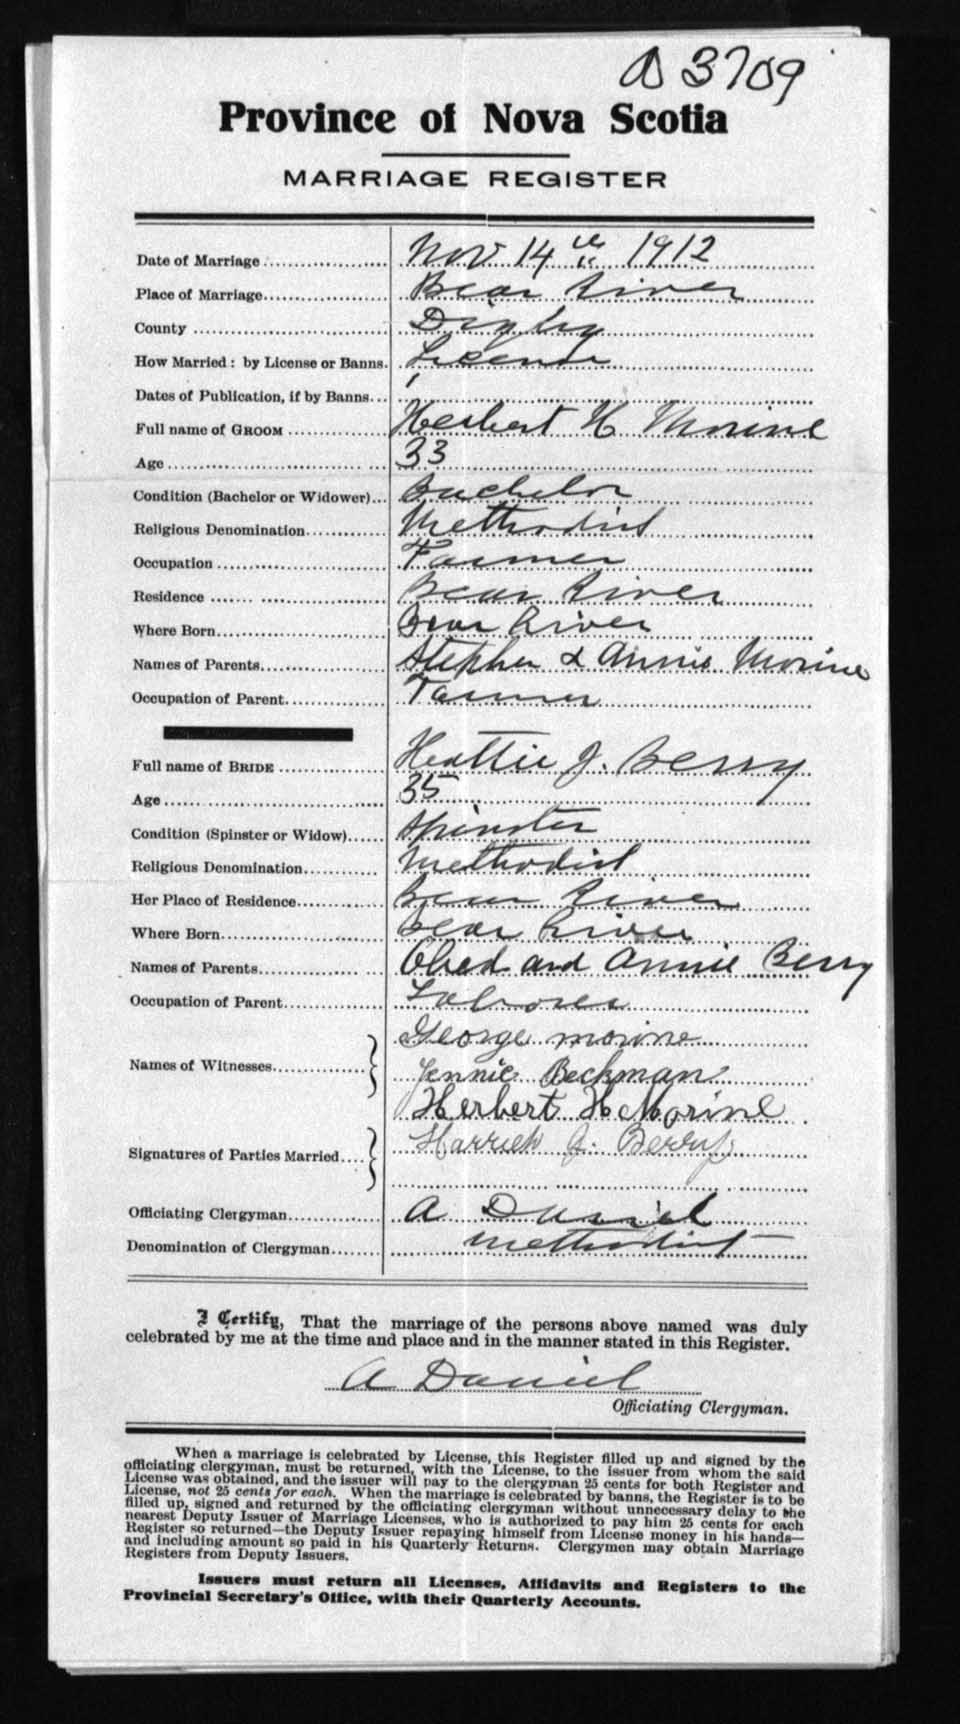 3709
Province of Nova Scotia
MARRIAGE REGISTER
Date of Marriage Nov 14th 1912
Place of Marriage Bear River
County Digby
How Married: by License or Banns. License
Dates of Publication, if by Banns
Full name of GROOM Herbert H Morine
Age 33
Condition (Bachelor or Widower) Bachelor
Religious Denomination Methodist
Occupation Farmer
Residence Bear River
Where Born Bear River
Names of Parents Stephen & Annie Morine
Occupation of Parent Farmer
Full name of BRIDE Heattie J. Berry
Age 35
Condition (Spinster or Widow) Spinster
Religious Denomination Methodist
Her Place of Residence Bear River
Where Born Bear River
Names of Parents Obed and Annie Berry
Occupation of Parent Laborer
George Morine
Names of Witnesses
Jennie Beckman
Herbert H Morine
Signatures of Parties Married J. Berry
Officiating Clergyman A Daniel
Denomination of Clergyman Methodist
I Certify, That the marriage of the persons above named was duly
celebrated by me at the time and place and in the manner stated in this Register.
A Daniel
Officiating Clergyman.
When a marriage is celebrated by License, this Register filled up and signed by the
officiating clergyman, must be returned, with the License, to the issuer from whom the said
License was obtained, and the issuer will pay to the clergyman 25 cents for both Register and
License, not 25 cents for each. When the marriage is celebrated by banns, the Register is to be
filled up, signed and returned by the officiating clergyman without unnecessary delay to the
nearest Deputy Issuer of Marriage Licenses, who is authorized to pay him 25 cents for each
Register so returned—the Deputy Issuer repaying himself from License money in his hands—
and including amount so paid in his Quarterly Returns. Clergymen may obtain Marriage
Registers from Deputy Issuers.
Issuers must return all Licenses, Affidavits and Registers to the
Provincial Secretary's Office, with their Quarterly Accounts.